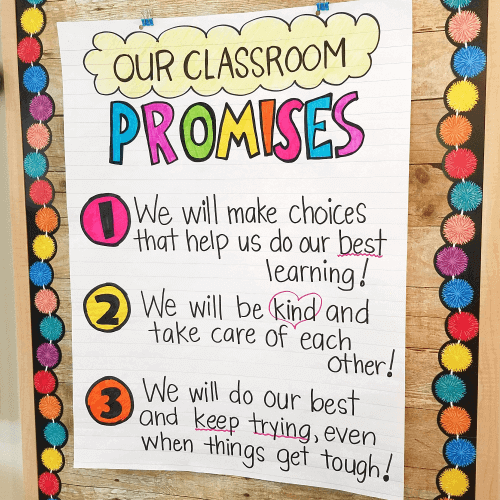 OUR CLASSROOM
PROMISES
1 We will make choices
that help us do our best
learning!
2 We will be kind and
take care of each
other!
3 We will do our best
and keep trying, even
when things get tough!